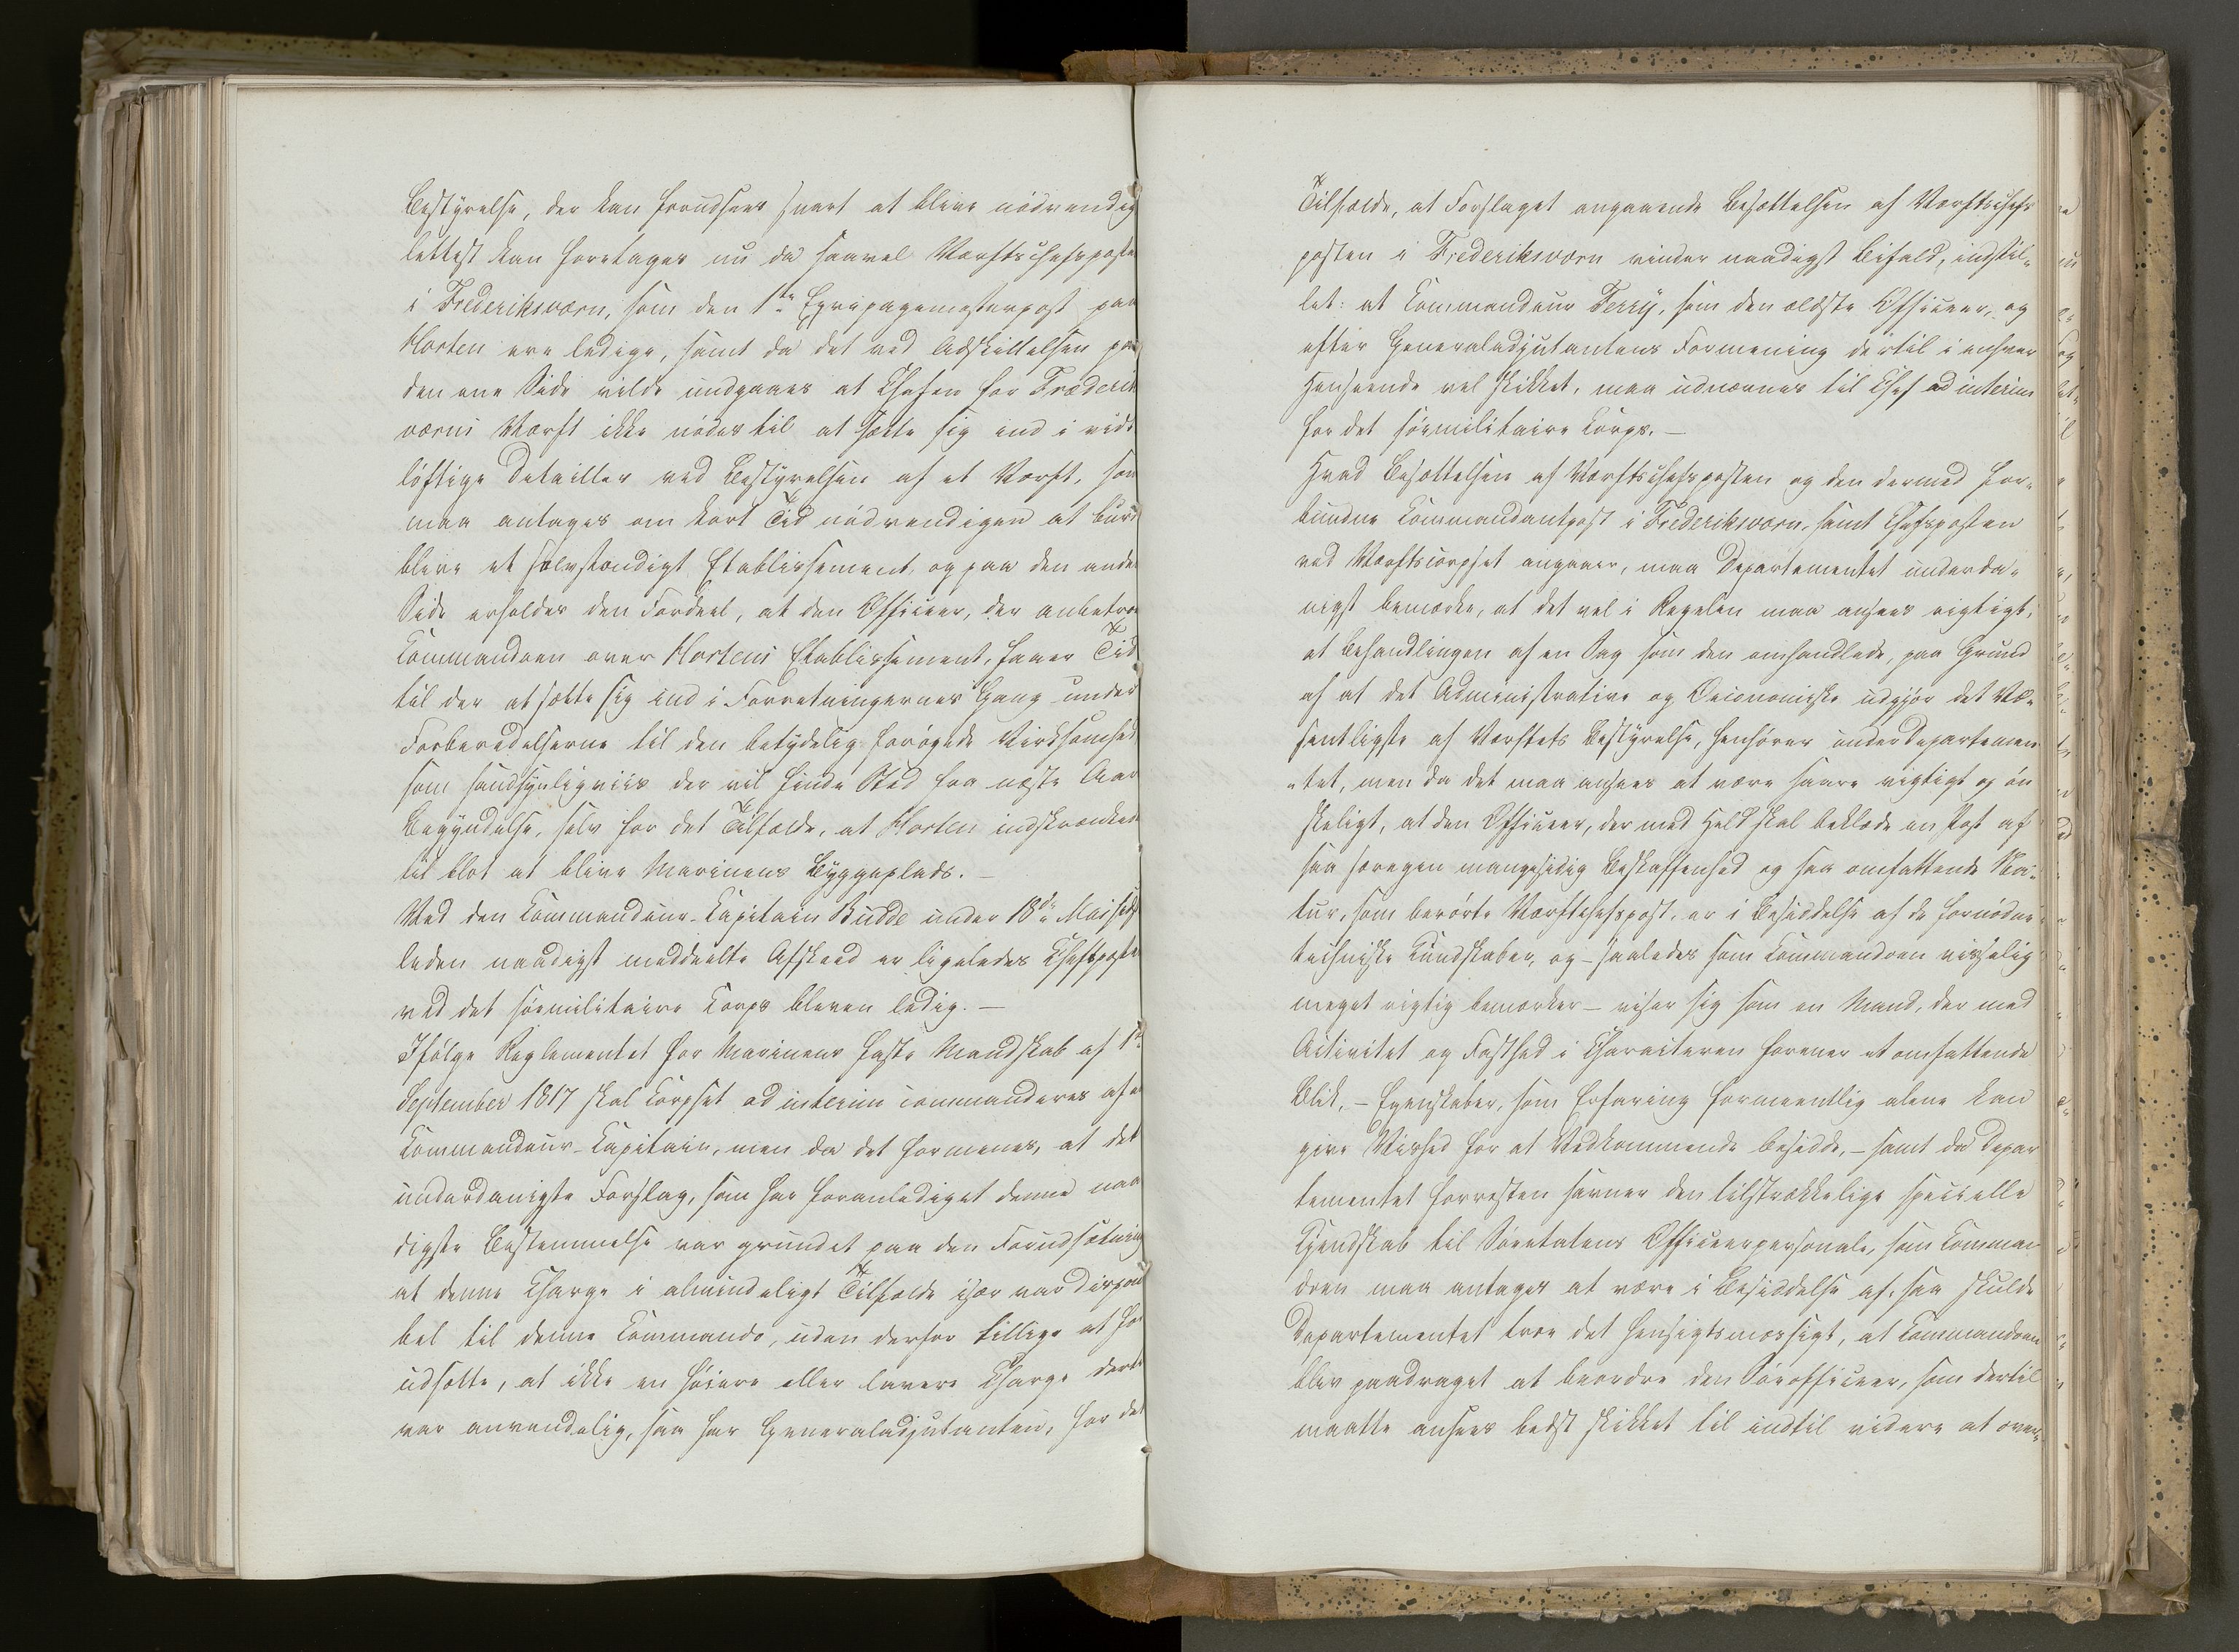 Bestyrelse, der kan forudsees snart at blive nödvendig
lettest kan foretages nu da saavel Værftschefsposte
i Frederiksværn, som den 1ste Eqvipagemesterpost paa
Horten ere ledige, samt da det ved Adskillelsen paa
den ene Side vilde undgaaes at Chefen for Fræderik
værns Værft ikke nödes til at sætte sig ind i vidt
löftige Detailler ved Bestyrelsen af et Værft, som
maa antages om kort Tid nödvendigen at burde
blive et selvstændigt Etablissement, og paa den anden
Side erholdes den Fordeel, at den Officeer, der anbetroes
Commandoen over Hortens Etablissement, faaer Tid
til der at sætte sig ind i Forretningernes Gang under
Forberedelserne til den betydelig forögede Virksomhed
som sandsynligviis der vil finde Sted fra næste Aars
Begyndelse, selv for det Tilfælde, at Horten indskrænkes
til blot at blive Marinens Byggeplads. —
Ved den Commandeur-Capitain Budde under 18de Mai sidst
leden naadigst meddeelte Afskeed er ligeledes Chefsposten
ved det söemilitaire Corps bleven ledig. —
Ifölge Reglementet for Marinens faste Mandskab af 1ste
September 1817 skal Corpset ad interim commanderes af en
Commandeur-Capitain, men da det formenes, at det
underdanigste Forslag, som har foranlediget denne naa
digste Bestemmelse var grundet paa den Forudsætning
at denne Charge i almindeligt Tilfælde især var dispon
bel til denne Commando, uden derfor tillige at for
udsætte, at ikke en höiere eller lavere Charge dertil
var anvendelig, saa har Generaladjutanten, for det
Tilfælde, at Forslaget angaaende Besættelsen af Værftschefs
posten i Frederiksværn vinder naadigst Bifald, indstil-
let: at Commandeur Ferry, som den ældste Officeer, og
efter Generaladjutantens Formening dertil i enhver
Henseende vel skikket, maa udnævnes til Chef ad interim
for det söemilitaire Corps. —
Hvad Besættelsen af Værftschefsposten og den dermed for-
bundne Commandantpost i Frederiksværn, samt Chefsposten
ved Værftscorpset angaaer, maa Departementet underda-
nigst bemærke, at det vel i Regelen maa ansees rigtigt,
at Behandlingen af en Sag som den omhandlede, paa Grund
af at det Administrative og Oeconomiske udgjör det Væ-
sentligste af Værftets Bestyrelse, henhörer under Departemen
-tet, men da det maa ansees at være saare vigtigt og ön
skeligt, at den Officeer, der med Held skal beklæde en Post af
saa særegen mangesidig Beskaffenhed og saa omfattende Na-
tur, som berörte Værftschefspost, er i Besiddelse af de fornödne
techniske Kundskaber, og - saaledes som Commandoen visselig
meget rigtig bemærker - viser sig som en Mand, der med
Activitet og Fasthed i Characteren forener et omfattende
Blik, — Egenskaber, som Erfaring formeentlig alene kan
give Vished for at Vedkommende besidde, — samt da Depar
tementet forresten savner den tilstrækkelige specielle
Kjendskab til Söeetatens Officeerpersonale, som Comman
doen maa antages at være i Besiddelse af, saa skulde
Departementet troe det hensigtsmæssigt, at Commandoen
blev paadraget at beordre den Söeofficeer, som dertil
maatte ansees bedst skikket til indtil videre at over-